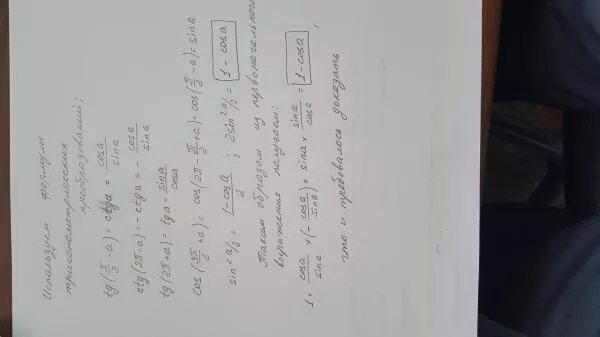 Используем формулы
тригонометрических
преобразований;
tg(π/2 - a) = ctga = cosa/sina
ctg(2π-a) = -ctga = - cosa/sina
tg(2π+a) = tga = sina/cosa
cos(3π/2 + a) = cos(2π - π/2 + a) = cos(π/2 - a) = sina
sin² a/2 = (1-cosa)/2 ; 2sin² a/2 = 1 - cosa
Таким образом из первоначального
выражения получаем:
1 + cosa/sina × (- cosa/sina) × sina × sina/cosa = 1-cosa ,
что и требовалось доказать